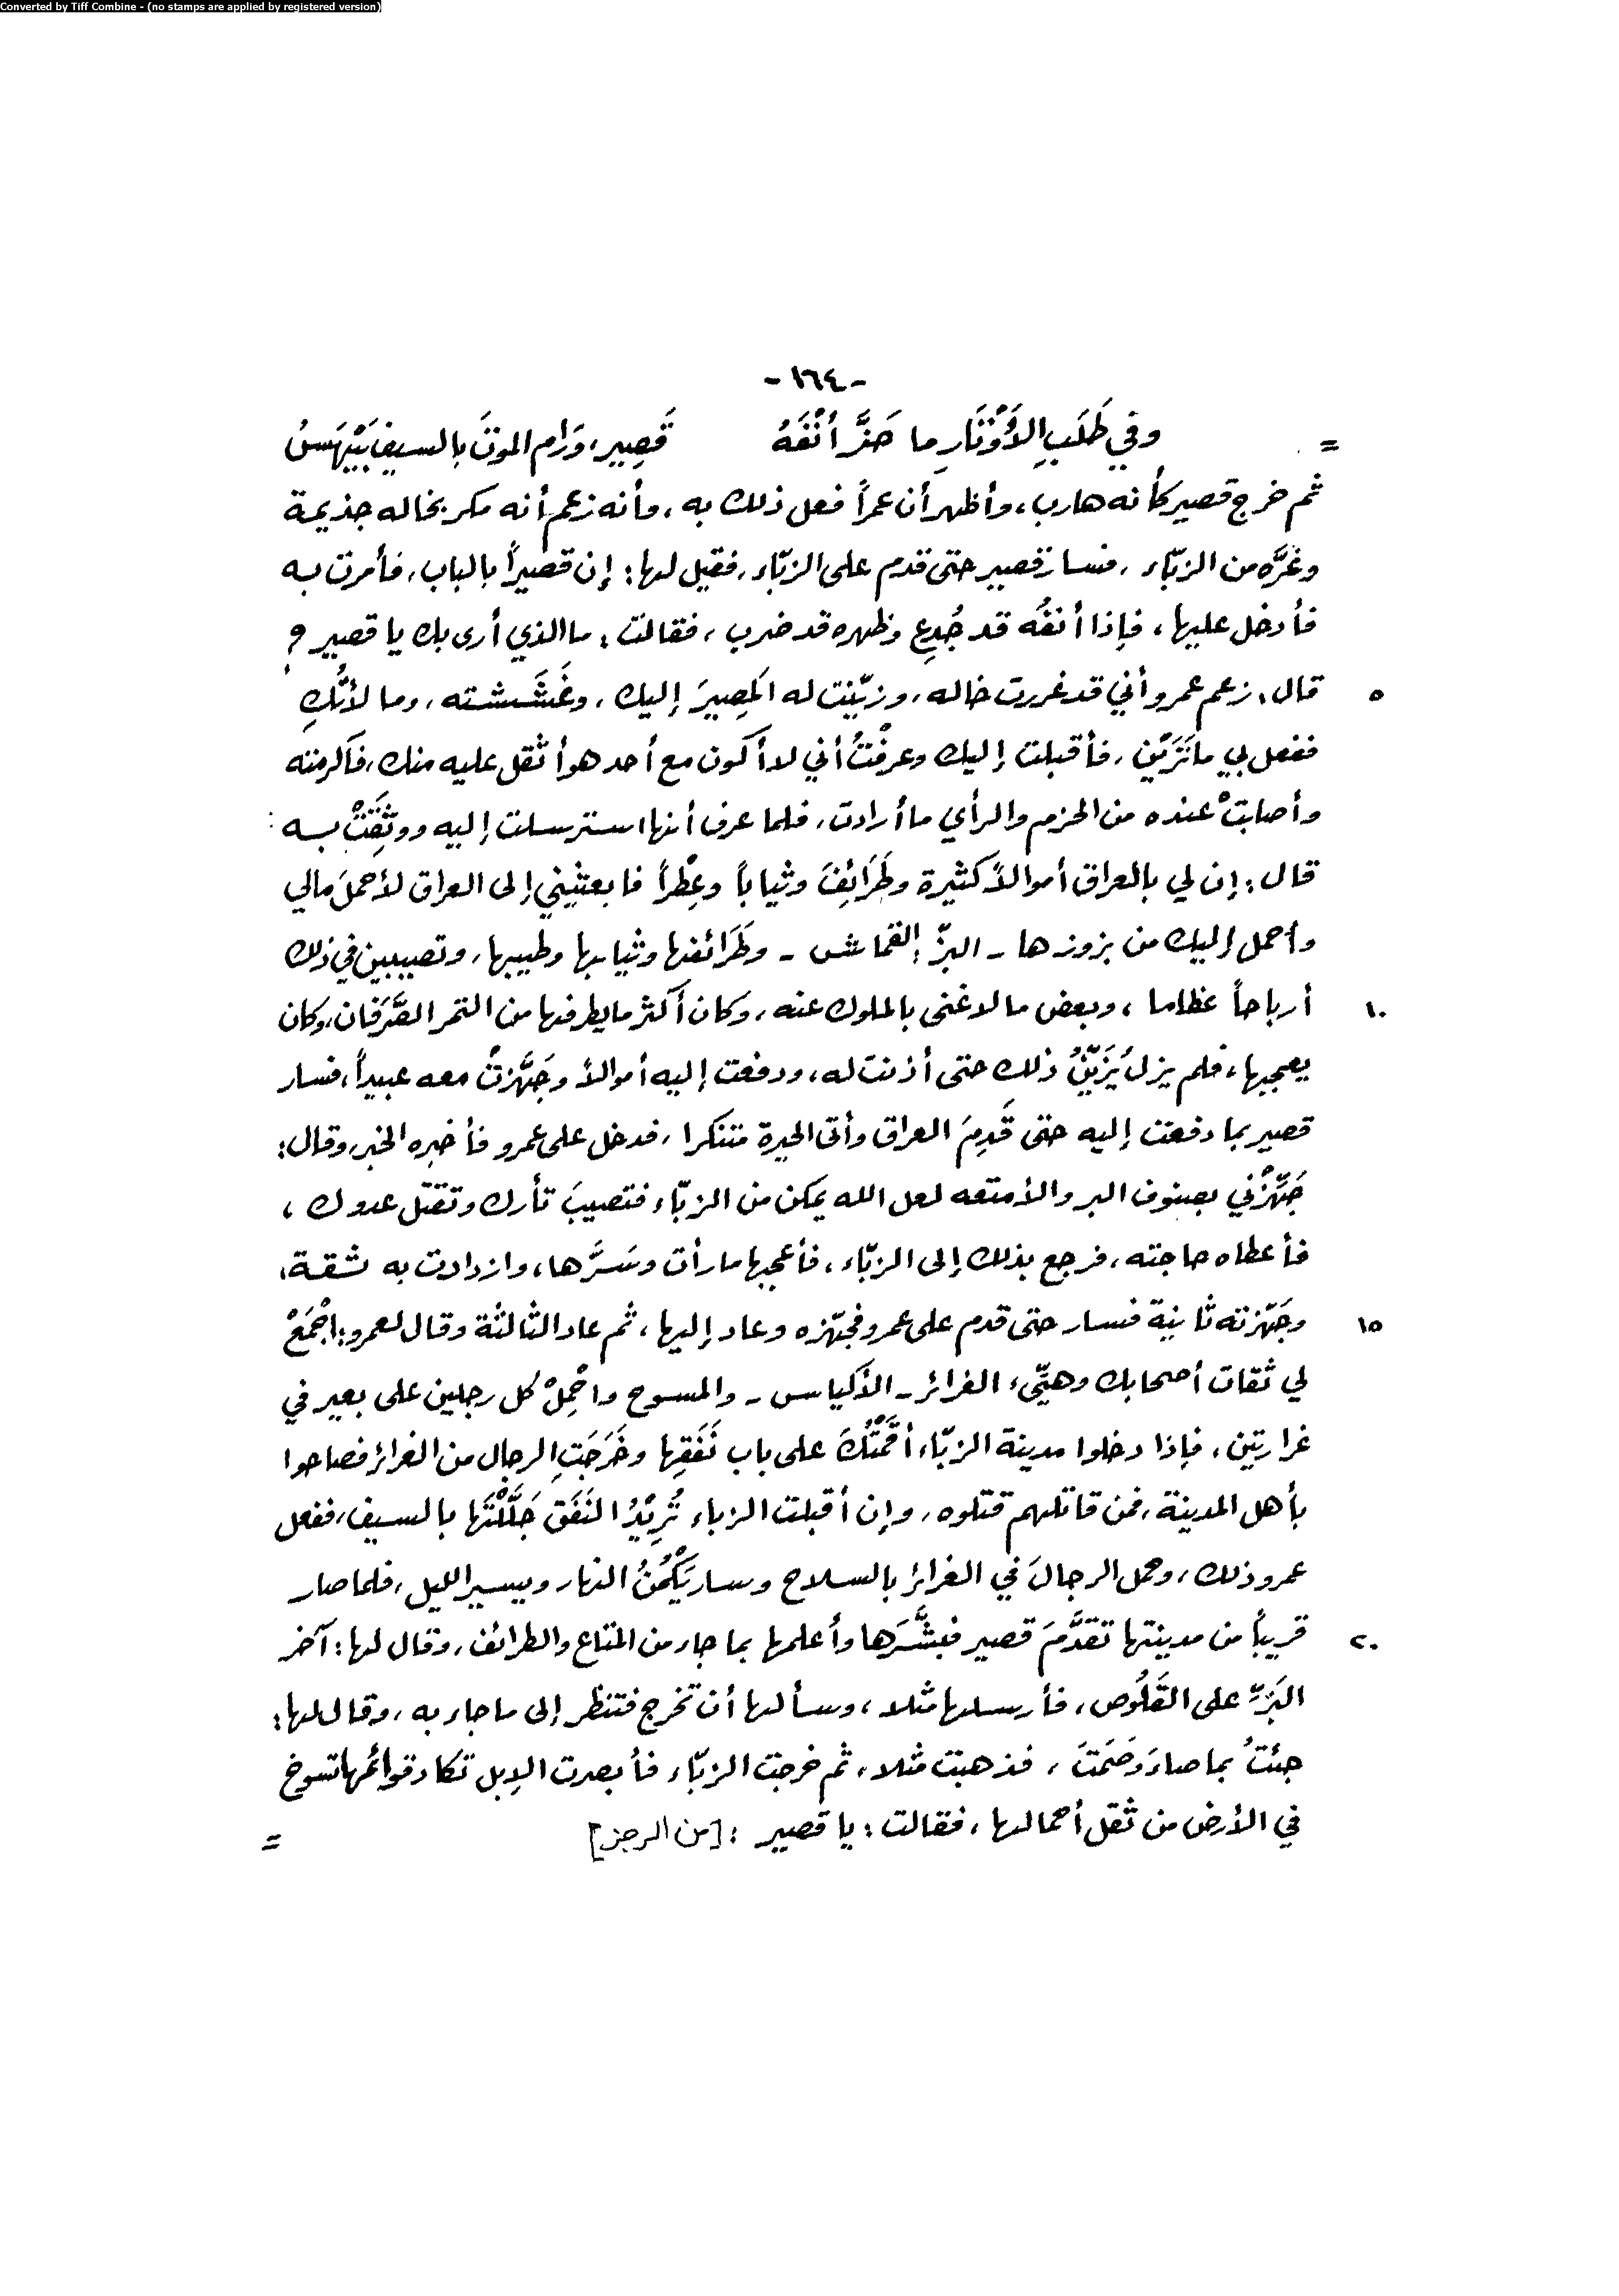 Converted by Tiff Combine - (no stamps are applied by registered version)
-١٦٤-
= وفي طَلَبِ الأَوْتَارِ ما حَزَّ أنْفَهُ قَصِير، وَرَام الموتَ بالسيف بَيْهَسُ
ثم خرج قصير كأنه هارب، وأظهر أن عمراً فعل ذلك به، وأنه زعم أنه مكر بخاله جذيمة
وغَرَّه من الزبّاء، فسار قصير حتى قدم على الزبّاء، فقيل لها: إن قصيراً بالباب، فأمرت به
فأدخل عليها، فإذا أنفُه قد جُدِع وظهره قد ضرب، فقالت: ما الذي أرى بك يا قصير؟
٥ قال: زعم عمرو أني قد غررت خاله، وزيّنت له المَصِيرَ إليك، وغَشَشته، ومالأتُكِ
ففعل بي ما تَرَيْن، فأقبلت إليك وعرفْتُ أني لا أكون مع أحد هو أثقل عليه منك، فأكرمته
وأصابتْ عنده من الحزم والرأي ما أرادت، فلما عرف أنها استرسلت إليه ووثِقَتْ بـه
قال: إن لي بالعراق أموالاً كثيرة وطَرَائِفَ وثياباً وعِطْراً فابعثيني إلى العراق لأحملَ مالي
وأحمل إليك من بزوزها - البزّ: القماش - وطَرَائفها وثيابها وطيبها، وتصيبين في ذلك
١٠ أرباحاً عظاما، وبعض ما لا غنى بالملوك عنه، وكان أكثر ما يطرفها من التمر الصَّرَفان، وكان
يعجبها، فلم يزل يُزَيِّنُ ذلك حتى أذنت له، ودفعت إليه أموالاً وجَهَّزتْ معه عبيداً، فسار
قصير بما دفعت إليه حتى قَدِمَ العراق وأتى الحيرة متنكرا، فدخل على عمرو فأخبره الخبر، وقال:
جَهِّزْني بصنوف البر والأمتعه لعل الله يمكن من الزبّاء فتصيبَ ثأرك وتقتل عدوك،
فأعطاه حاجته، فرجع بذلك إلى الزبّاء، فأعجبها ما رأت وسَرَّها، وازدادت به ثقـة،
١٥ وجَهّزته ثانية فسار حتى قدم على عمرو فجهّزه وعاد إليها، ثم عاد الثالثة وقال لعمرو: اجْمَعْ
لي ثقات أصحابك وهيّىء الغرائر - الأكياس - والمسوح واحْمِلْ كل رجلين على بعير في
غرارتين، فإذا دخلوا مدينة الزبّاء أقمْتُكَ على باب نَفَقِها وخَرَجَتِ الرجال من الغرائر فصاحوا
بأهل المدينة، فمن قاتلهم قتلوه، وإن أقبلت الزباء تُرِيْدُ النَفَق جَلَّلْتَها بالسيف، ففعل
عمرو ذلك، وحمل الرجالَ في الغرائر بالسلاح وسار يَكْمُنُ النهار ويسير الليل، فلما صار
٢٠ قريباً من مدينتها تقدَّمَ قصير فبشَّرَها وأعلمها بما جاء من المتاع والطرائف، وقال لها: آخر
البَزّ على القَلُوص، فأرسلها مثلا، وسألها أن تخرج فتنظر إلى ما جاء به، وقال لها:
جئتُ بما صاءَ وصَمَتَ، فذهبت مثلا، ثم خرجت الزبّاء فأبصرت الإبل تكاد قوائمها تسوخ
في الأرض من ثقل أحمالها، فقالت: يا قصير: [من الرجز] =